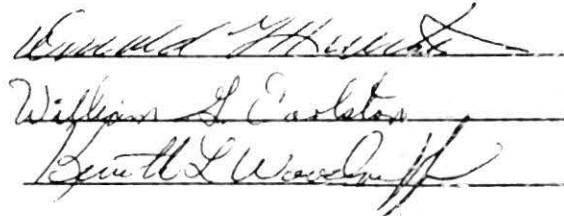 Donald
William G. Earlston
Kenneth L Woodruff